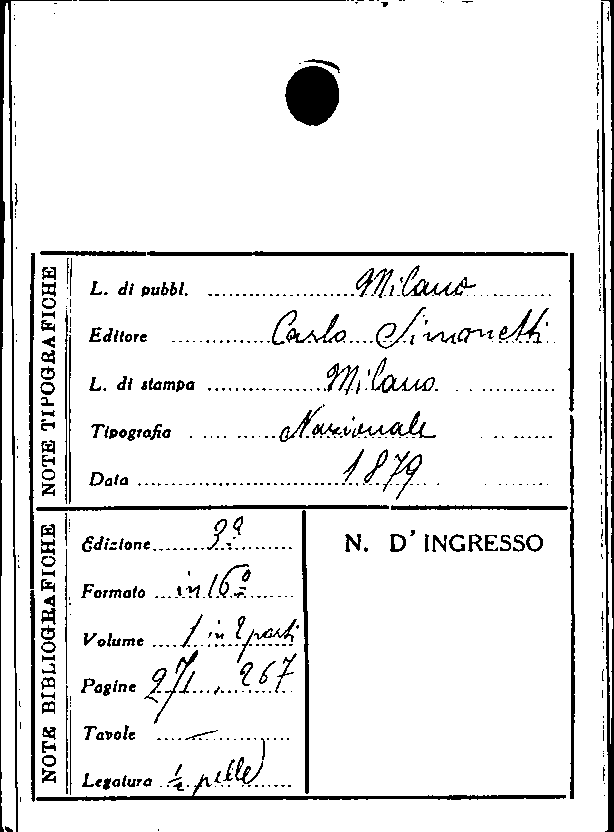 NOTE TIPOGRAFICHE
L. di pubbl. Milano
Editore Carlo Simonetti
L. di stampa Milano
Tipografia Nazionale
Data 1879
NOTE BIBLIOGRAFICHE
Edizione 3ª
Formato in 16º
Volume 1 in 2 parti
Pagine 271, 267
Tavole —
Legatura ½ pelle
N. D'INGRESSO